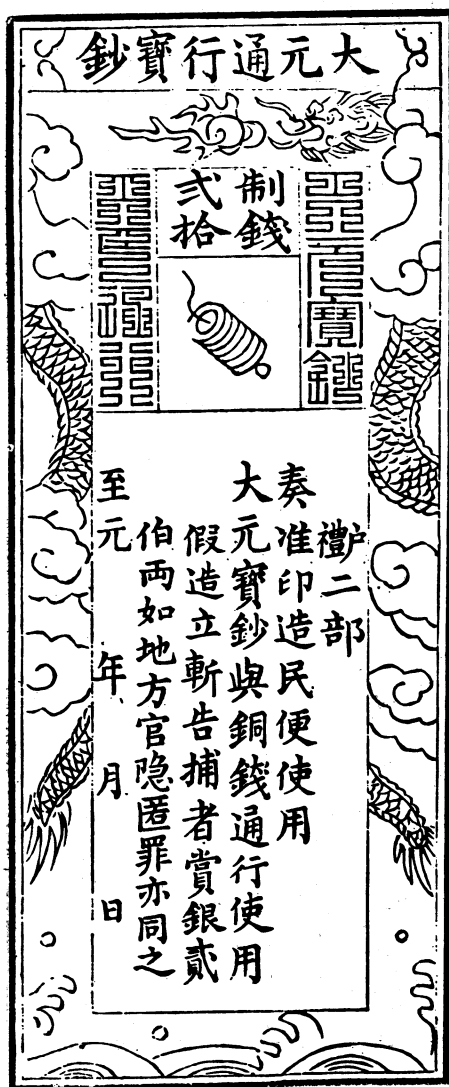 大元通行寶鈔
制錢
弍拾
禮戶二部
奏准印造民便使用
大元寶鈔與銅錢通行使用
假造立斬告捕者賞銀貳
伯両如地方官隐匿罪亦同之
至元 年 月 日